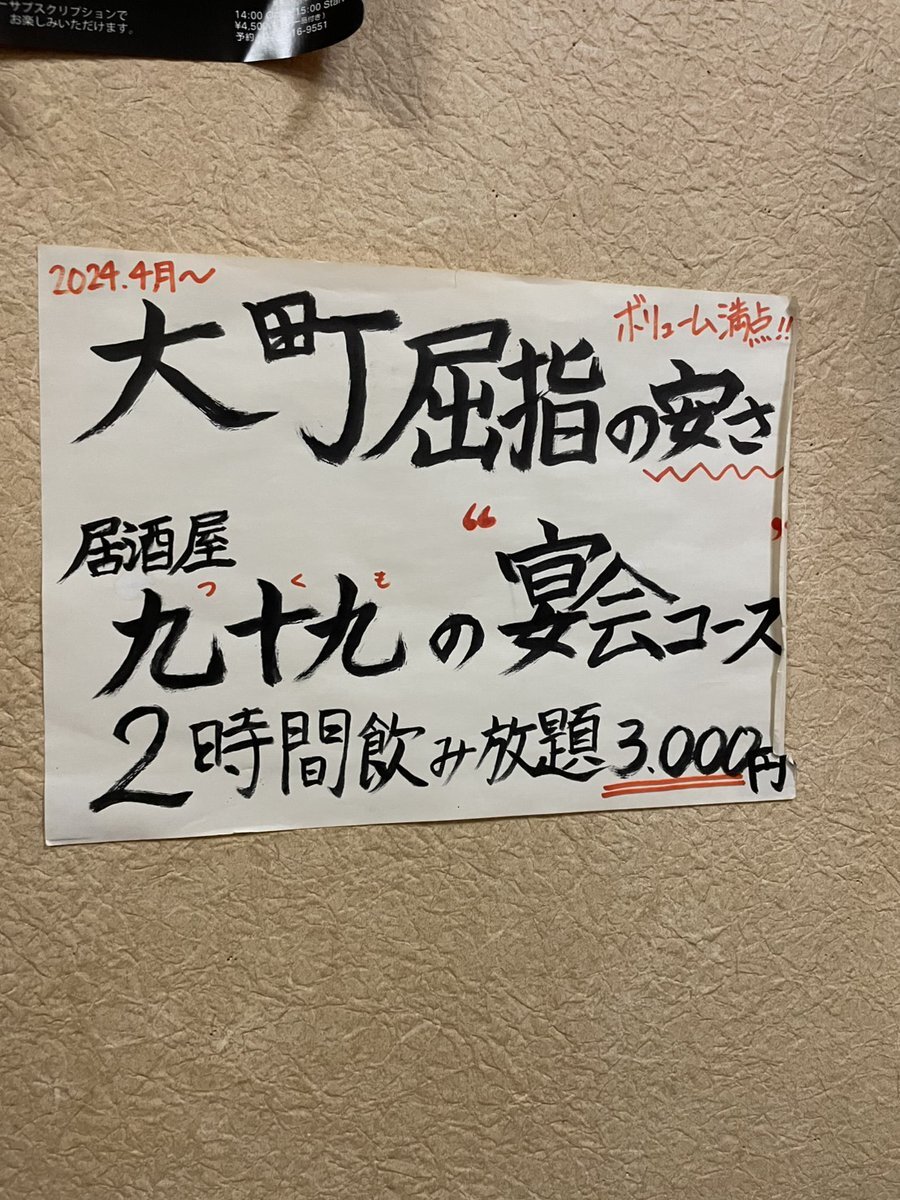 ーサブスクリプションで
お楽しみいただけます。
14:00
15:00 Start
¥4,50
品付き)
予約
16-9551
2024.4月〜
ボリューム満点!!
大町屈指の安さ
居酒屋
つくも
九十九の“宴会コース”
2時間飲み放題3.000円